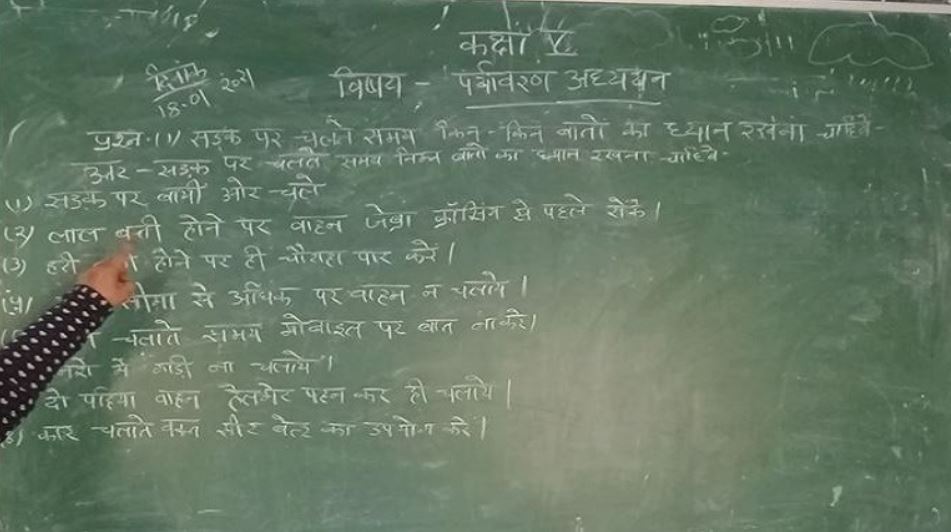 कक्षा V
दिनांक 18.01 2021
विषय - पर्यावरण अध्ययन
प्रश्न-(1) सड़क पर चलते समय किन-किन बातों का ध्यान रखना चाहिये-
उत्तर - सड़क पर चलते समय निम्न बातों का ध्यान रखना चाहिये-
(1) सड़क पर बायीं ओर चले
(2) लाल बत्ती होने पर वाहन जेब्रा क्रॉसिंग से पहले रोकें।
(3) हरी होने पर ही चौराहा पार करें।
(4) सीमा से अधिक पर वाहन न चलाये।
चलाते समय मोबाइल पर बात ना करे।
नशे में गाड़ी ना चलाये।
दो पहिया वाहन हेलमेट पहन कर ही चलाये।
8) कार चलाते वक्त सीट बेल्ट का उपयोग करें।